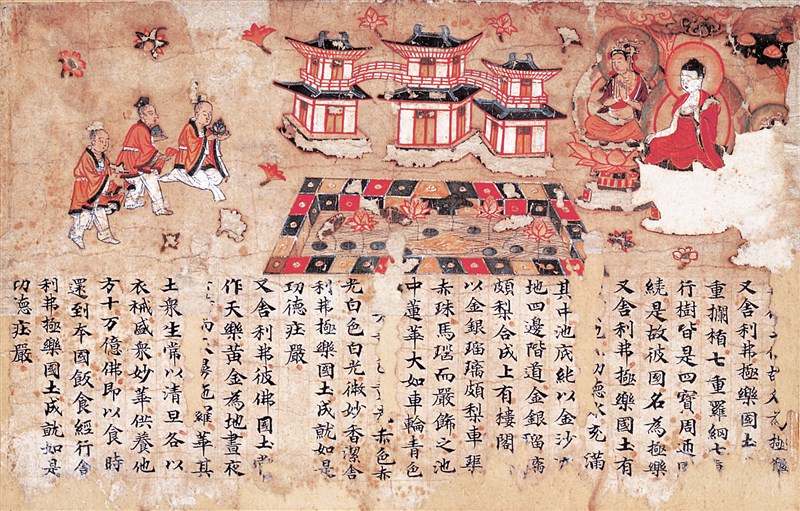 極樂
又舍利弗極樂國土
重攔楯七重羅網七
行樹皆是四寶周匝
繞是故彼國名為極樂
又舍利弗極樂國土有
充滿
其中池底純以金沙
地四邊階道金銀瑠璃
頗梨合成上有樓閣
以金銀瑠璃頗梨車𤦲
赤珠馬瑙而嚴飾之池
中蓮華大如車輪青色
赤色赤
光白色白光微妙香潔舍
利弗極樂國土成就如是
功德莊嚴
又舍利弗彼佛國土常
作天樂黃金為地晝夜
羅華其
土眾生常以清旦各以
衣裓盛眾妙華供養他
方十万億佛即以食時
還到本國飲食經行舍
利弗極樂國土成就如是
功德莊嚴